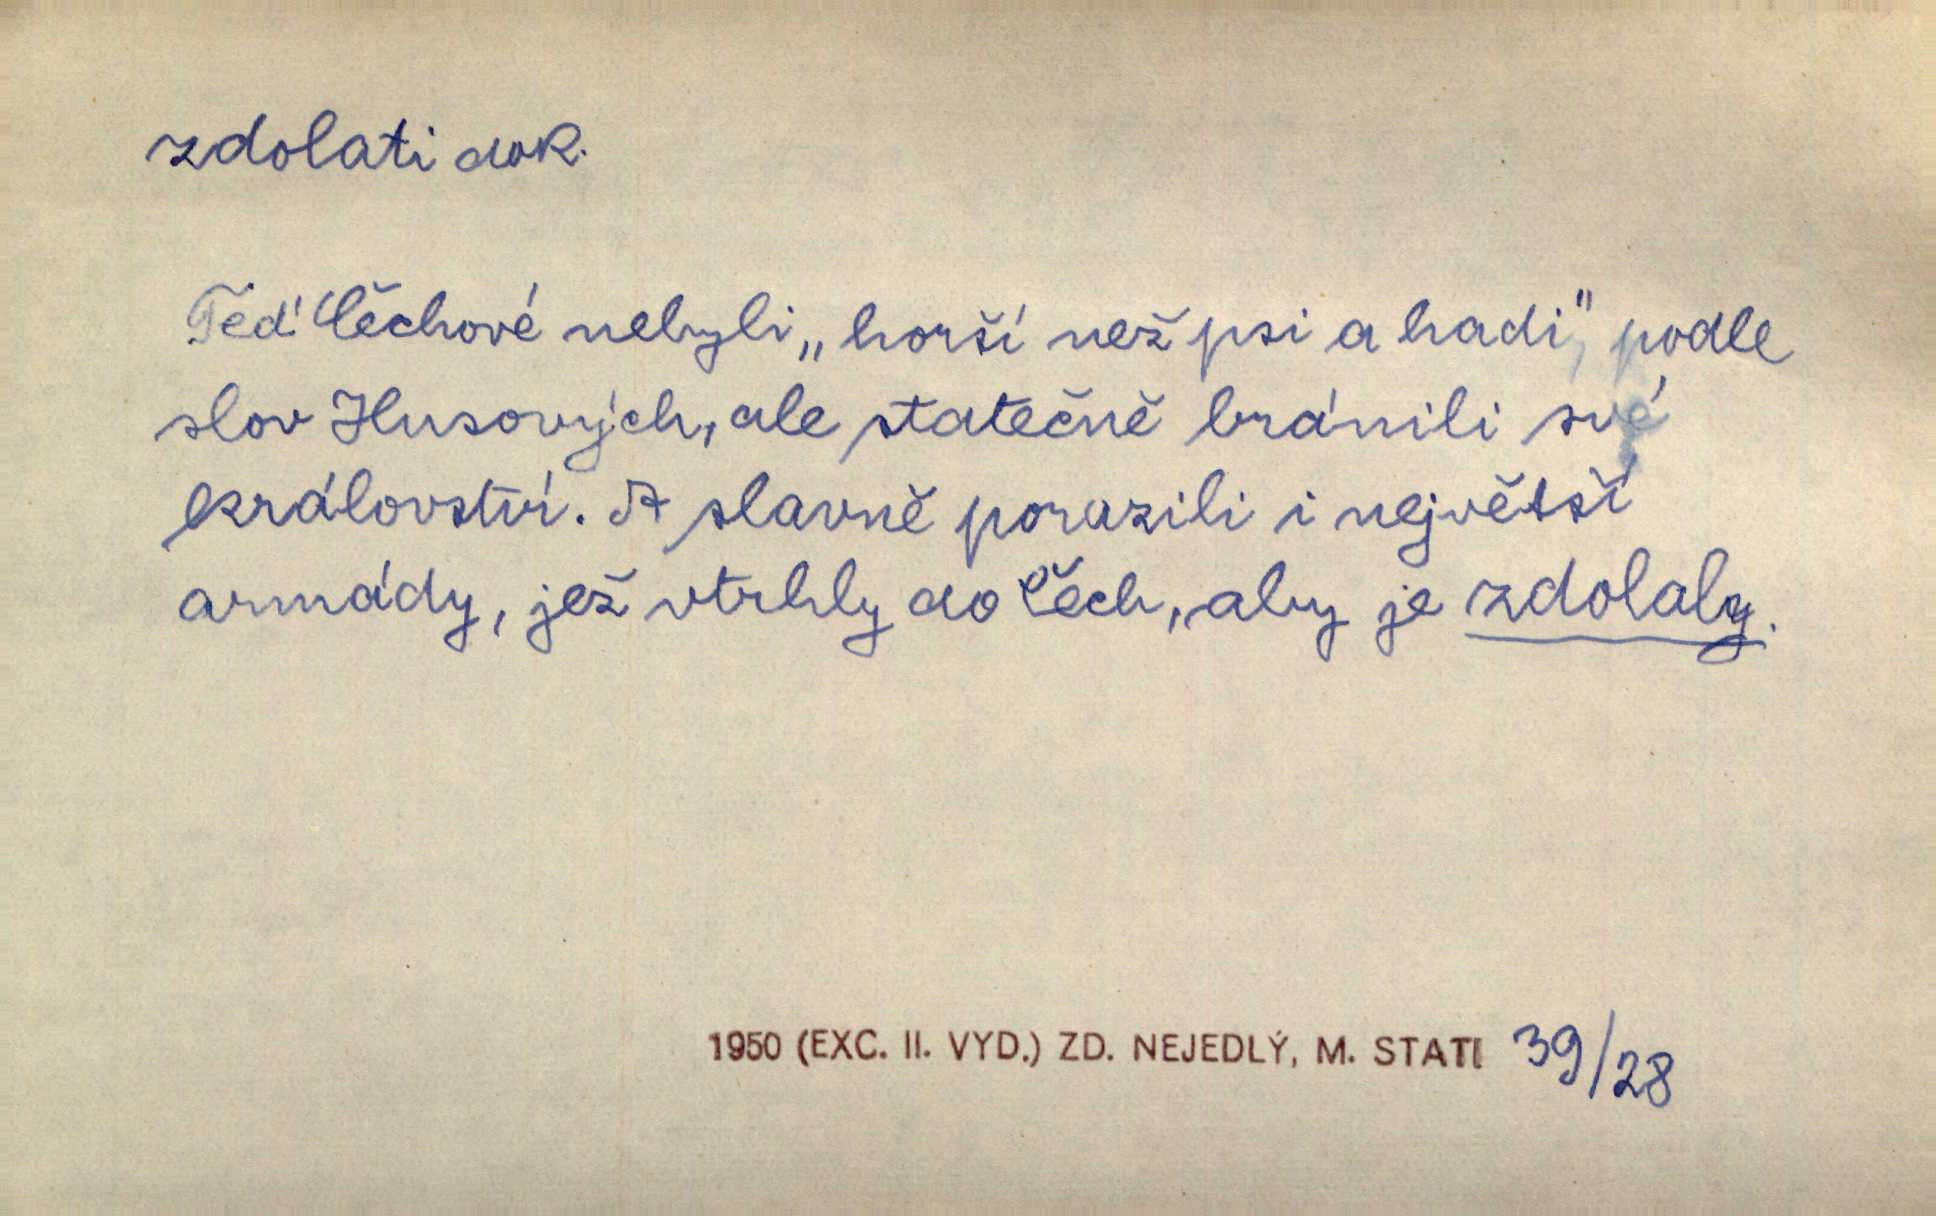 zdolati dok.
Teď Čechové nebyli „horší než psi a hadi", podle
slov Husových, ale statečně bránili své
království. A slavně porazili i největší
armády, jež vtrhly do Čech, aby je zdolaly.
1950 (EXC. II. VYD.) ZD. NEJEDLÝ, M. STATI 39/28